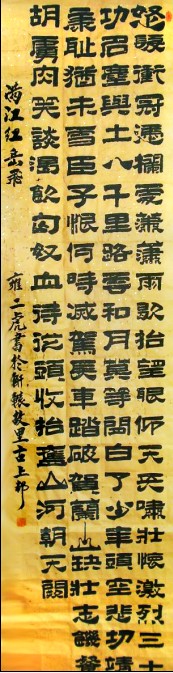 怒髮衝冠憑欄處瀟瀟雨歇抬望眼仰天長嘯壯懷激烈三十
功名塵與土八千里路雲和月莫等閒白了少年頭空悲切靖
康恥猶未雪臣子恨何時滅駕長車踏破賀蘭山缺壯志饑餐
胡虜肉笑談渴飲匈奴血待從頭收拾舊山河朝天闕
滿江红 岳飛 雍二虎書於軒轅故里古上邽